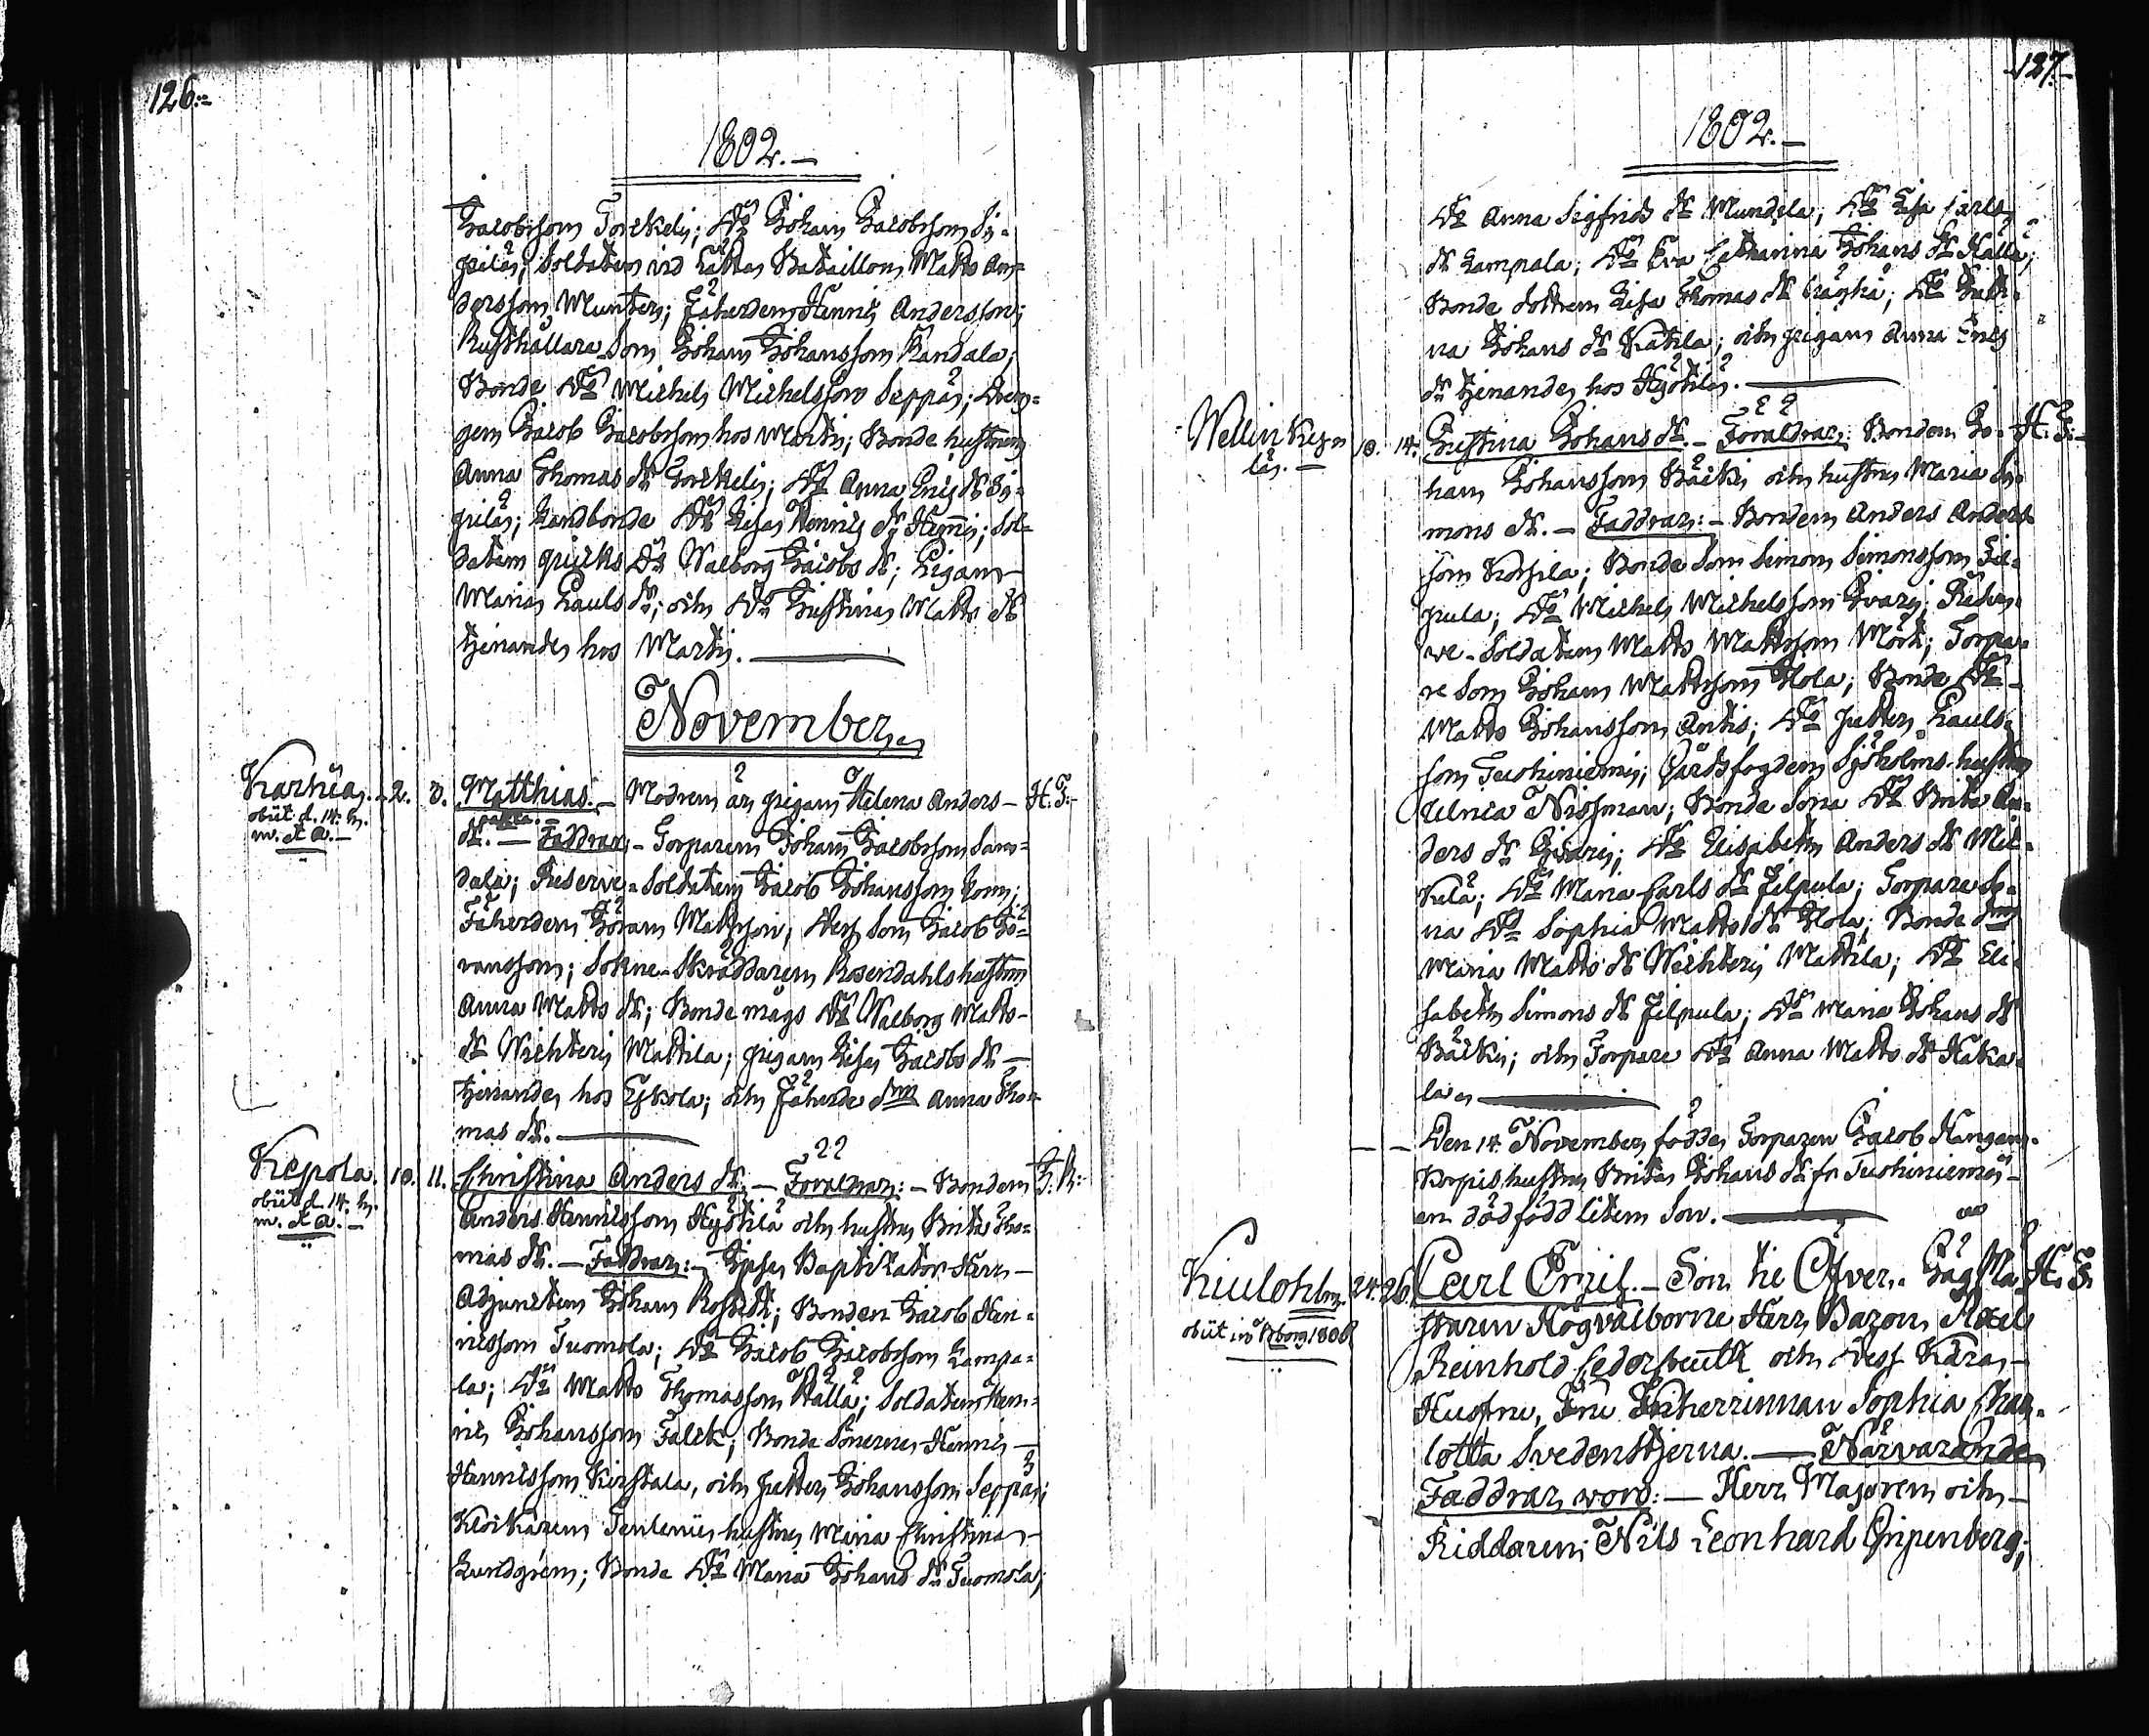 126.
1802.
Jacobsson Torckeli; Do Johan Jacobsson Sy-
pilä; Soldaten vid Lätta Bataillon Matts An-
dersson Munter; Fäherden Henric Andersson;
Rusthållare Son Johan Johansson Kandala;
Bonde Do Michel Michelsson Seppä; Dren-
gen Jacob Jacobsson hos Marti; Bonde hustrun
Anna Thomas dr Torckeli; Do Anna Eric dr Sy-
pilä; Landbonde Do Lisa Henric dr Henni; Sol-
daten Quicks Do Walborg Jacobs dr; Pigan
Maria Pauls dr; och Do Justina Matts dr
tjenande hos Marti.
November
Karhia. 2. 8. Matthias. Modren är pigan Helena Anders- H. F.
obiit d. 14. h. m. et a.
dr. Faddrar: Torparen Johan Jacobsson San-
dala; Reserve-Soldaten Jacob Johansson Konn;
Fäherden Göran Mattsson; Dess Son Jacob Gö-
ransson; Sokne-Skräddaren Rosendahls hustru
Anna Matts dr; Bonde mågs Do Walborg Matts-
dr Wichteri Mattila; pigan Lisa Jacobs dr
tjenande hos Eskola; och Fäherde Do Anna Tho-
mas dr.
Kepola. 10. 11. Christina Anders dr. Föräldrar: Bonden
obiit d. 14. h. m. et a.
Anders Henricsson Hyötilä och hustru Brita Tho-
mas dr. Faddrar: Ipse Baptizator Herr
Adjuncten Johan; Bonden Jacob Hen-
ricsson Tuomola; Do Jacob Jacobsson Lampa-
la; Do Matts Thomasson Källä; Soldaten Hen-
ric Johansson Falck; Bonde Sönerne Henric
Henricsson Kirstala, och Petter Johansson Seppä;
Klockaren Tenlenii hustru Maria Christina
Lundgren; Bonde Do Maria Johans dr Tuomola;
127.
1802.
Do Anna Sigfrids dr Mundila; Do Lisa Carls
dr Lampala; Do Eva Catharina Johans dr Källä;
Bonde dottren Lisa Thomas dr; Do Justi-
na Johans dr Katila; och pigan Anna Erics
dr tjenande hos Hyötilä.
Wellinkylä. 10. 14. Justina Johans dr. Föräldrar: Bonden Jo- H. F.
han Johansson Bäcki och hustru Maria Si-
mons dr. Faddrar: Bonden Anders Anders-
son Kopila; Bonde Son Simon Simonsson Jil-
pula; Do Michel Michelsson Jvari; Reser-
ve-Soldaten Matts Mattsson Mört; Torpa-
re Son Johan Mattsson Hola; Bonde Do
Matts Johansson Antis; Do Petter Pauls-
son Tuohiniemi; Gårdsfogden Sjöholms hustru
Ulrica Nissman; Bonde Sona Do Brita An-
ders dr Jvari; Do Elisabeth Anders dr Mic-
kelä; Do Maria Carls dr Jilpula; Torpare So-
na Do Sophia Matts dr Hola; Bonde
Maria Matts dr Wichteri Mattila; Do Eli-
sabeth Simons dr Jilpula; Do Maria Johans dr
Bäcki; och Torpare Do Anna Matts dr Haka-
la
Den 14. November födde Torparen Jacob Kangan-
korpis hustru Brita Johans dr fr Tuohiniemi
en dödfödd liten Son.
Kiulohlm. 24. 26. Carl Emil. Son til Öfver-Jägmä- H. F.
obiit in Åborg 1808
staren Högvälborne Herr Baron Axel
Reinhold Cedercreutz och Dess Kära
Hustru, Fru Friherrinnan Sophia Char-
lotta Svedenstjerna. Närvarande
Faddrar voro: Herr Majoren och
Riddaren Nils Leonhard Gripenberg;